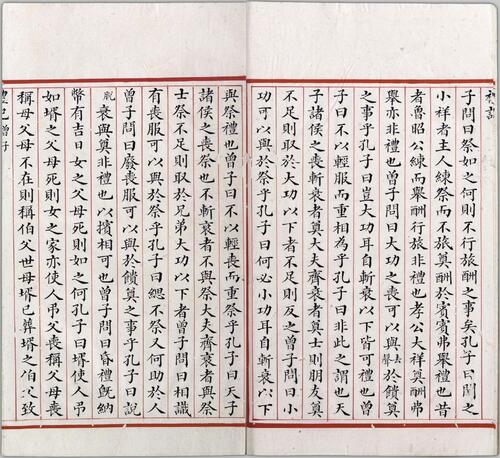 禮記
子問曰祭如之何則不行旅酬之事矣孔子曰聞之
小祥者主人練祭而不旅奠酬於賓賓弗舉禮也昔
者魯昭公練而舉酬行旅非禮也孝公大祥奠酬弗
舉亦非禮也曾子問曰大功之喪可以與去聲於饋奠
之事乎孔子曰豈大功耳自斬衰以下皆可禮也曾
子曰不以輕服而重相為乎孔子曰非此之謂也天
子諸侯之喪斬衰者奠大夫齊衰者奠士則朋友奠
不足則取於大功以下者不足則反之曾子問曰小
功可以與於祭乎孔子曰何必小功耳自斬衰以下
與祭禮也曾子曰不以輕喪而重祭乎孔子曰天子
諸侯之喪祭也不斬衰者不與祭大夫齊衰者與祭
士祭不足則取於兄弟大功以下者曾子問曰相識
有喪服可以與於祭乎孔子曰緦不祭又何助於人
曾子問曰廢喪服可以與於饋奠之事乎孔子曰說
脫衰與奠非禮也以擯相可也曾子問曰昏禮既納
幣有吉日女之父母死則如之何孔子曰壻使人弔
如壻之父母死則女之家亦使人弔父喪稱父母喪
稱母父母不在則稱伯父世母壻已葬壻之伯父致
禮記曾子